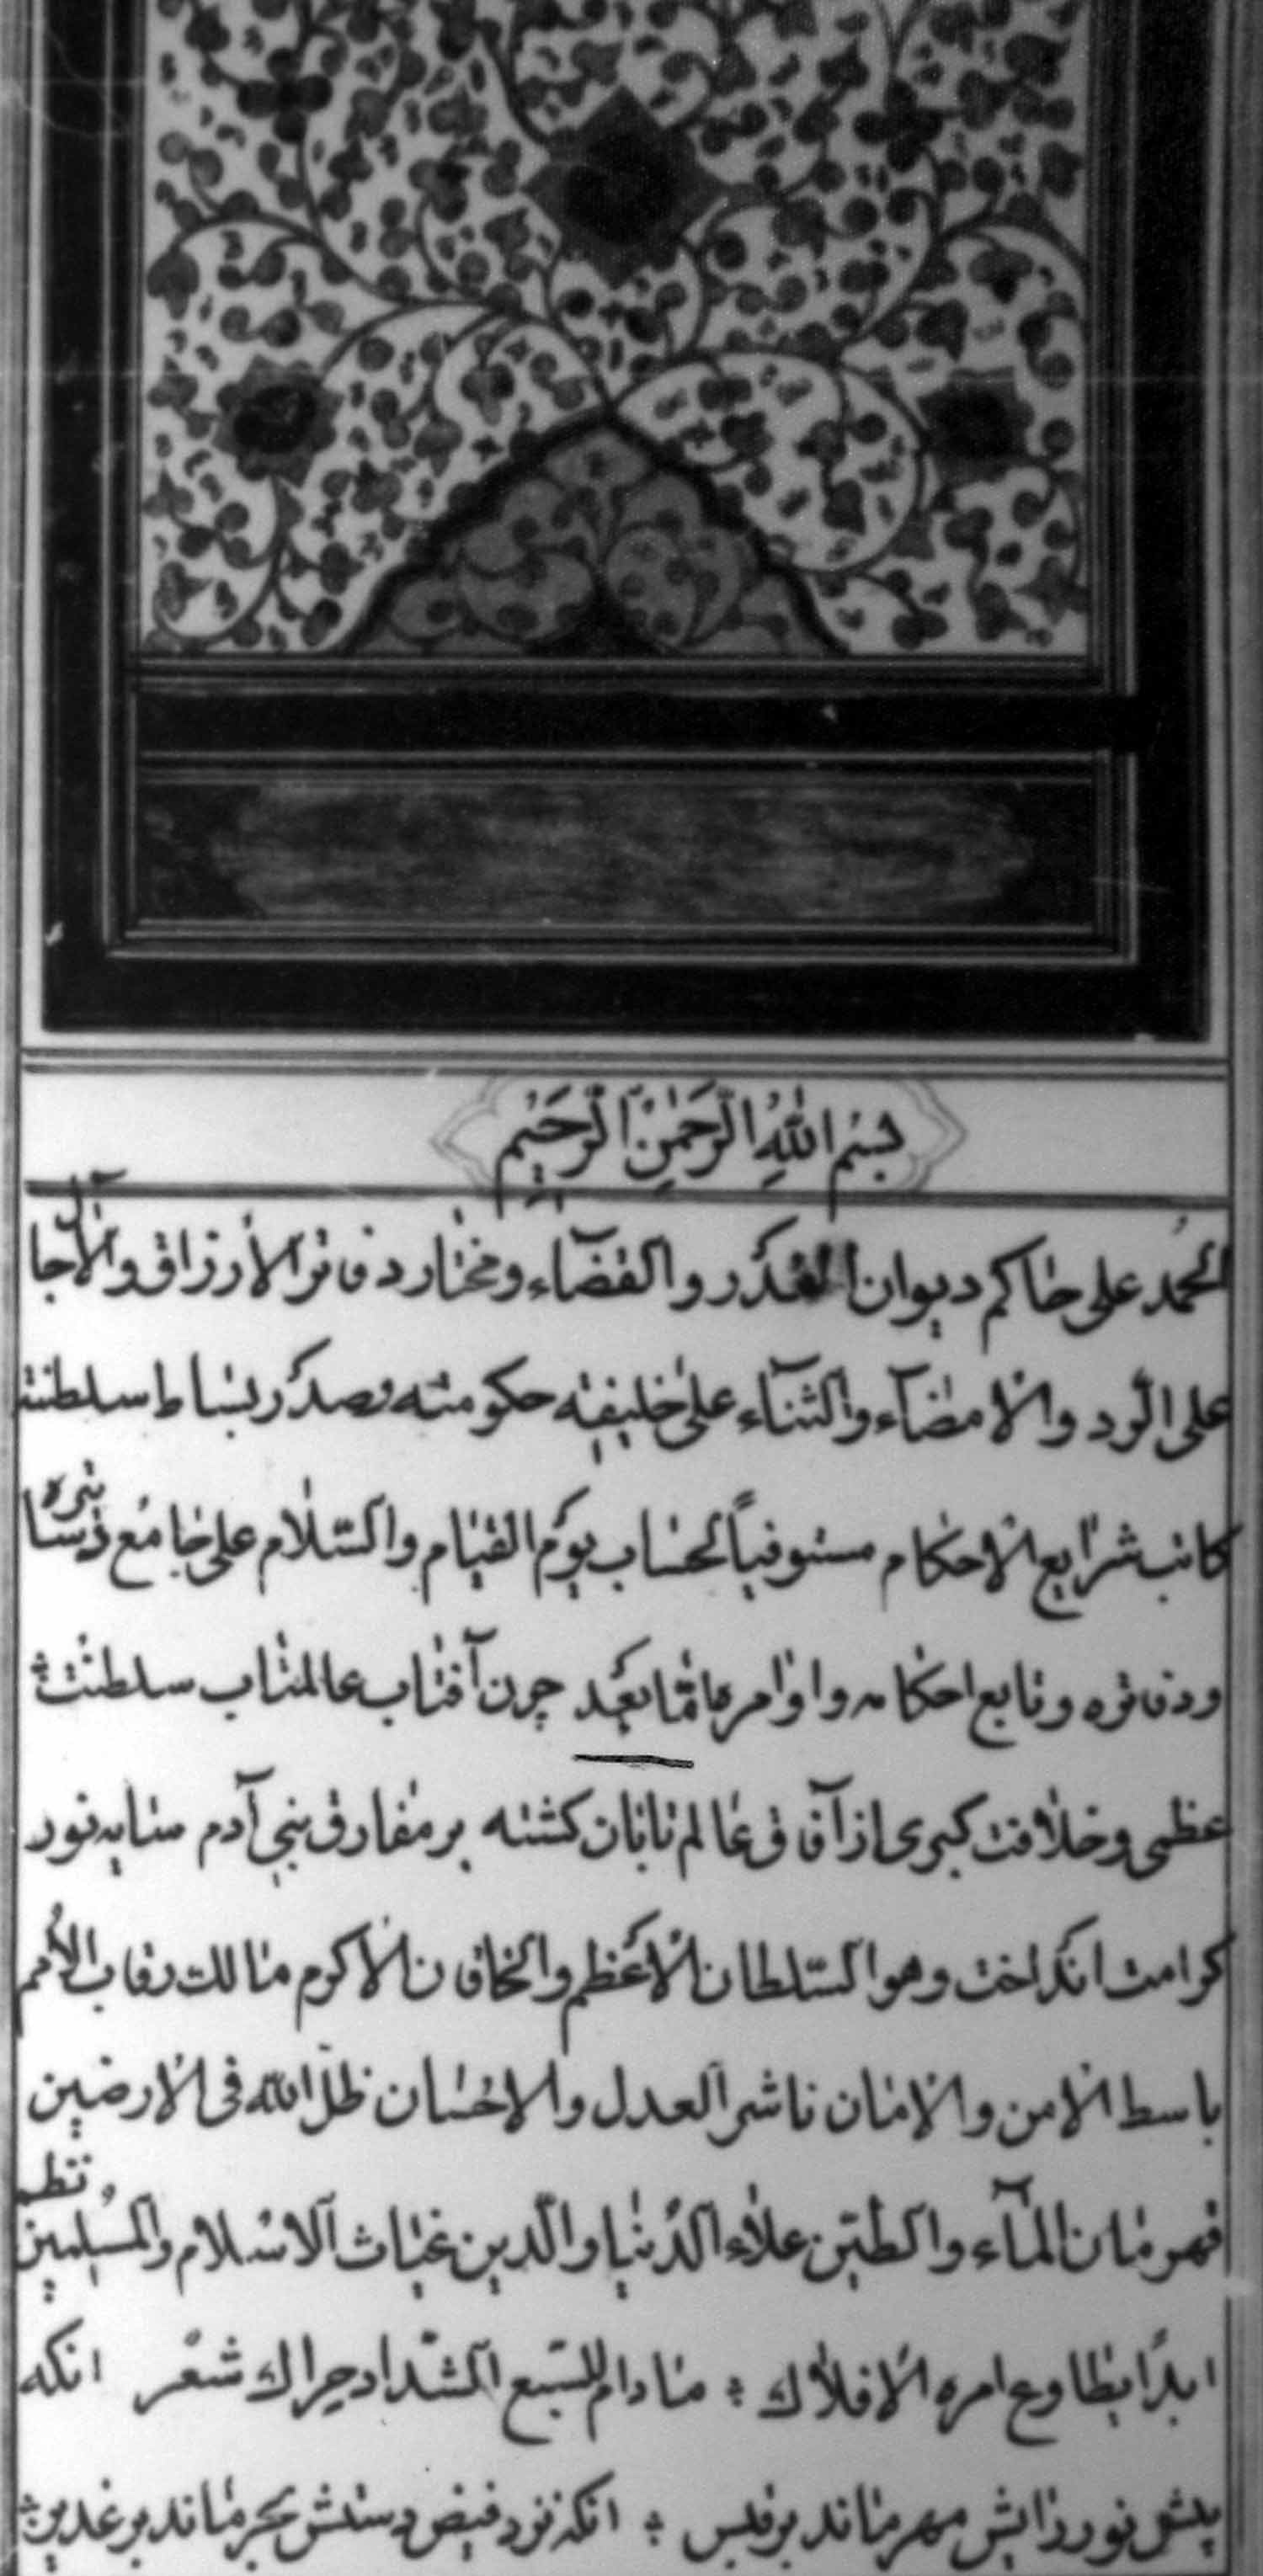 بسم الله الرحمن الرحیم
الحمد علی حاکم دیوان القدر والقضاء ومختار دفاتر الأرزاق والآجال
علی الرد والامضاء والثناء علی خلیفته حکومته وصدر بساط سلطنته
کاتب شرایع الاحکام مستوفیاً لحساب یوم القیام والسلام علی جامع
ودفاتره وتابع احکامه واوامره اما بعد چون آفتاب عالمتاب سلطنت
عظمی وخلافت کبری از آفاق عالم تابان کشته بر مفارق بنی آدم سایه نور
کرامت انداخت وهو السلطان الاعظم والخاقان الاکرم مالک رقاب الأمم
باسط الامن والامان ناشر العدل والاحسان ظل الله فی الارضین
قهرمان المآء والطین علاء الدنیا والدین غیاث الاسلام والمسلمین نظم
ابداً یطاوع امره الافلاك ؛ مادام للسبع الشداد حراك شعر انکه
پیش نور رایش مهر ماند بر قبس ؛ انکه نزد فیض دستش بحر ماند بر غدیر